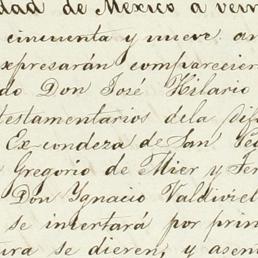 dad de México a vein
cincuenta y nueve an
xpresarán comparecier
do Don José Hilario
testamentarios dela dif
Ex-condeza de San Pe
Gregorio de Mier y Ter
Don Ygnacio Valdiviel
se insertará por prin
ura se dieren, y asen